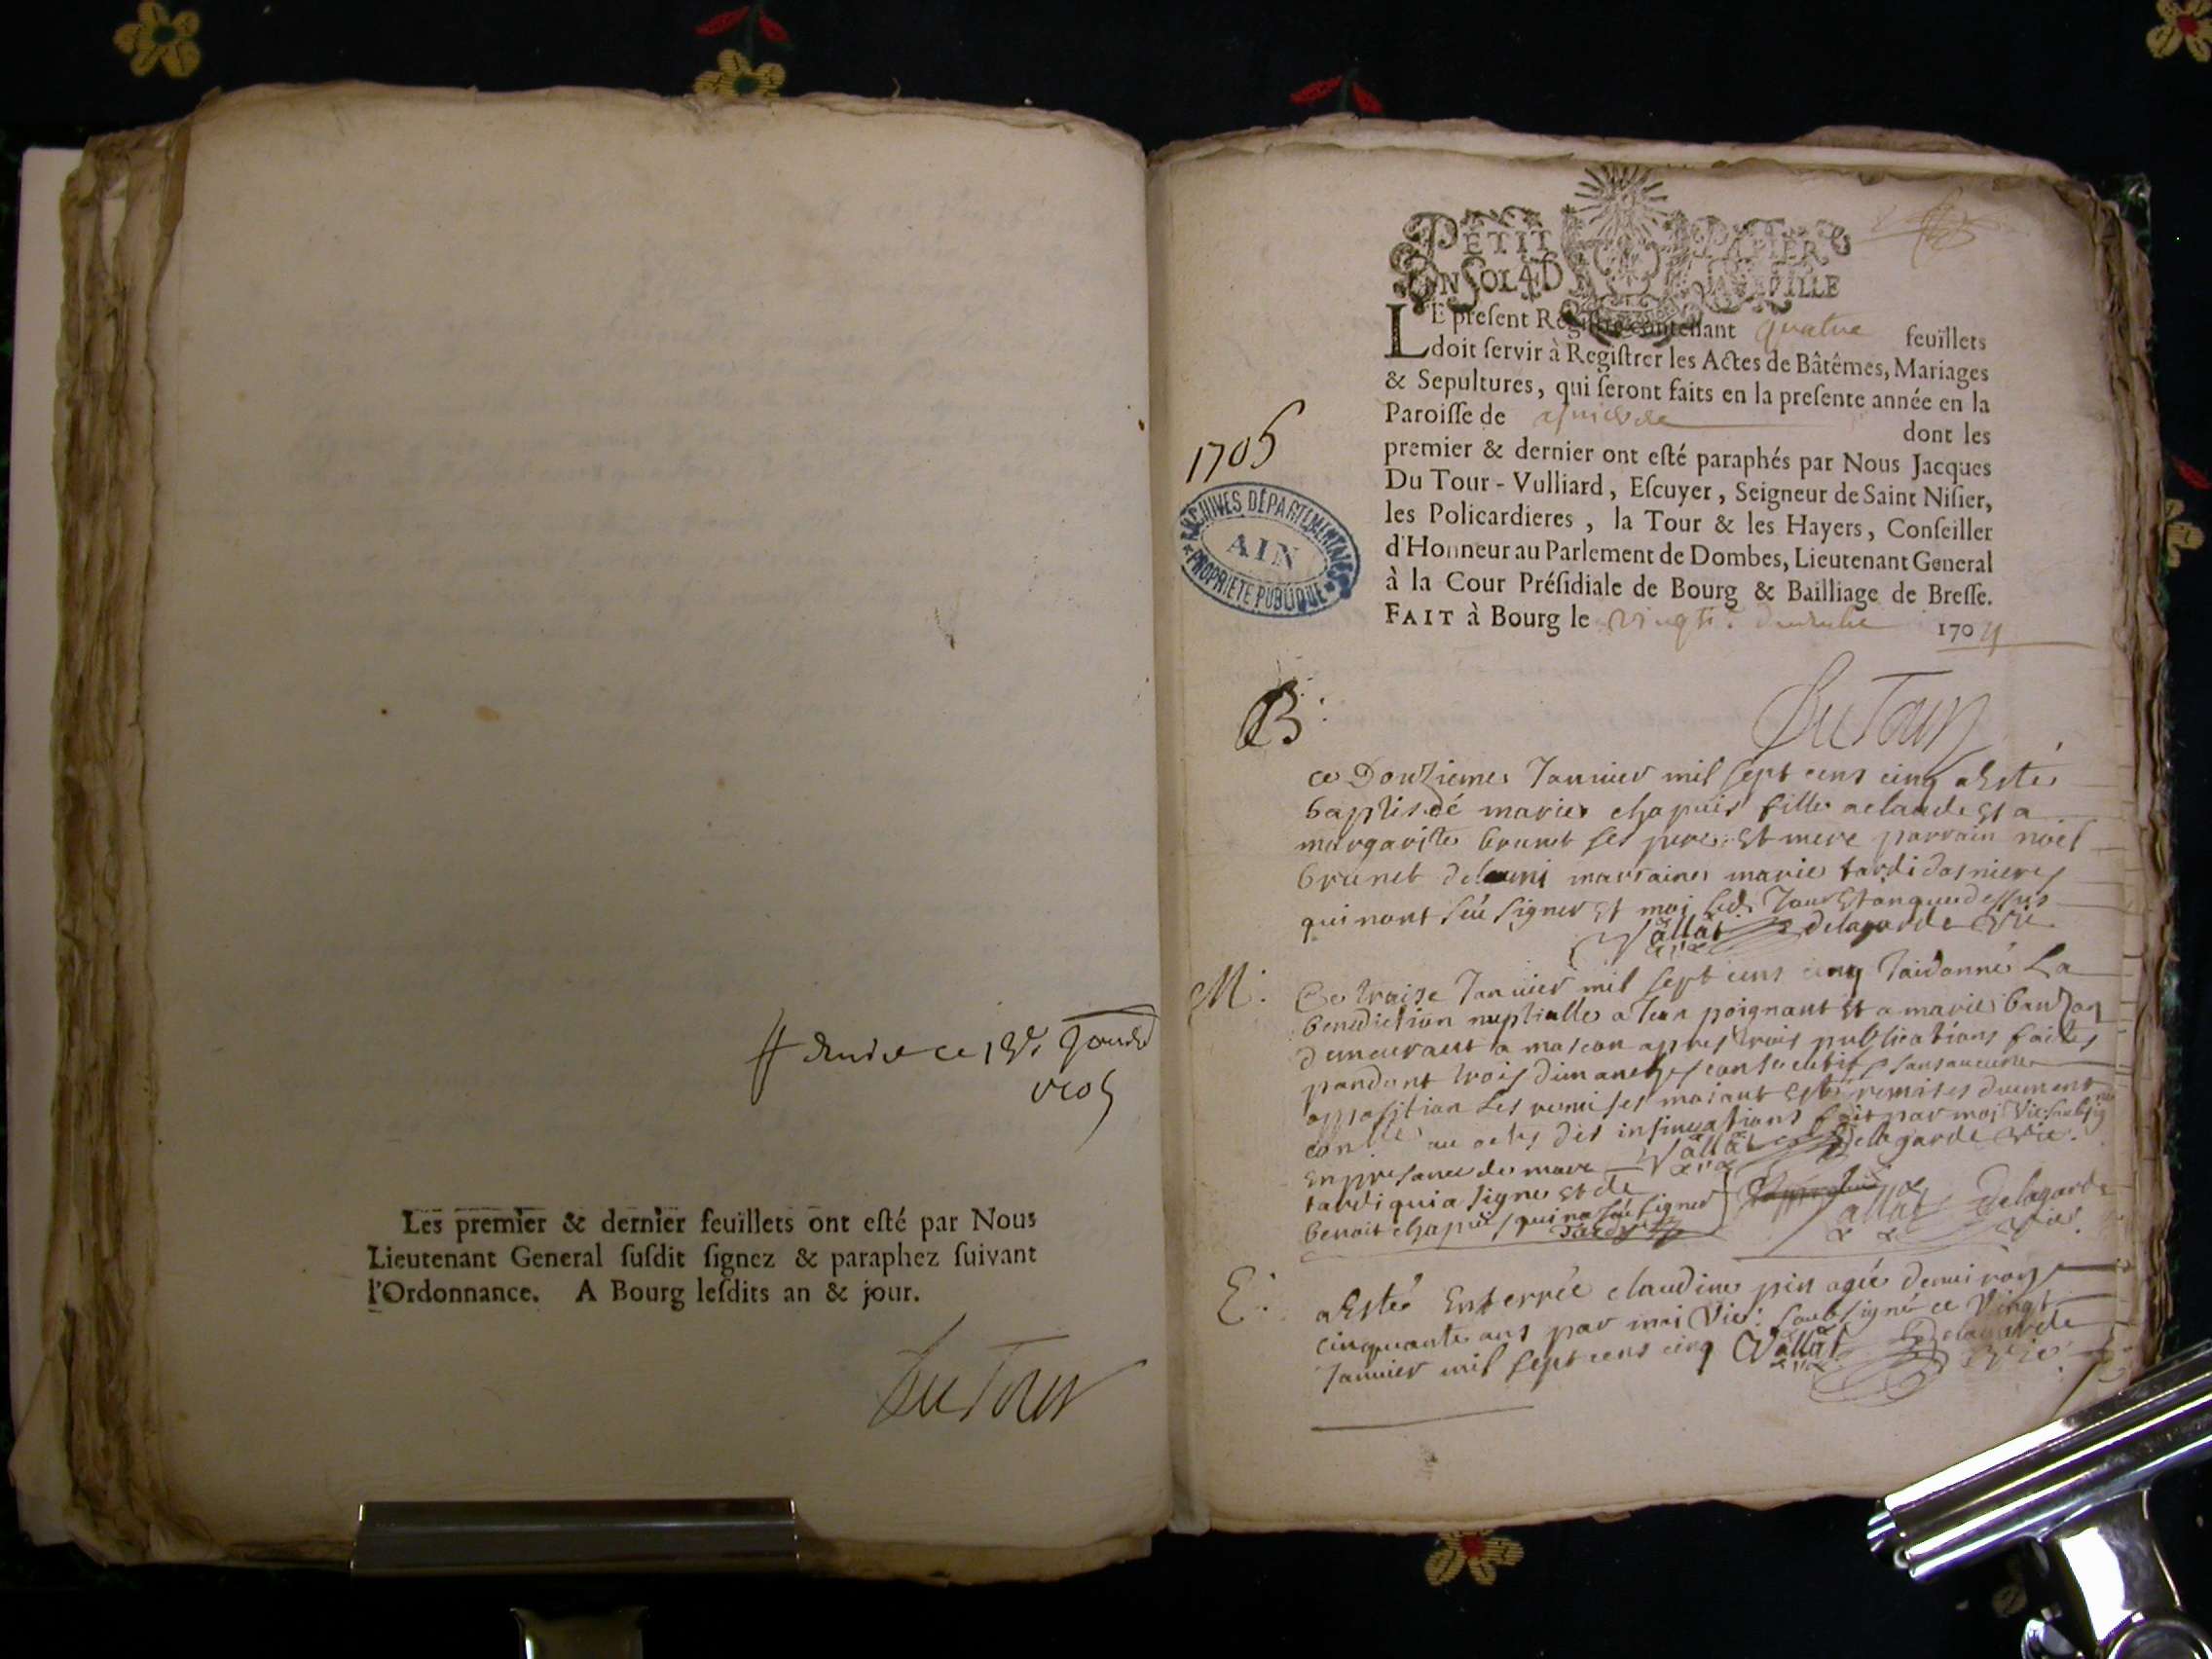 Les premier & dernier feuillets ont esté par Nous
Lieutenant General susdit signez & paraphez suivant
l'Ordonnance. A Bourg lesdits an & jour.
Du Tour
PETIT PAPIER
UN SOL 4 D LA FEUILLE
LE present Registre contenant quatre feuillets
doit servir à Registrer les Actes de Bâtêmes, Mariages
& Sepultures, qui seront faits en la presente année en la
Paroisse de dont les
premier & dernier ont esté paraphés par Nous Jacques
Du Tour - Vulliard, Escuyer, Seigneur de Saint Nisier,
les Policardieres, la Tour & les Hayers, Conseiller
d'Honneur au Parlement de Dombes, Lieutenant General
à la Cour Présidiale de Bourg & Bailliage de Bresse.
FAIT à Bourg le 170
1705
ARCHIVES DÉPARTEMENTALES
AIN
PROPRIÉTÉ PUBLIQUE
Du Tour
B.
ce Douzieme Januier mil sept cens cinq a Esté
baptisdé marie chapuis fille a claude Et a
margarite brunet ses pere Et mere parrain noel
brunet marraine marie tardi dasnieres
qui nont seü signer Et moi Jour Et an que dessus
Vallat delagarde vic
M.
Ce traize Januier mil sept cens cinq Jai donné La
benediction nuptialle a Jean poignant Et a marie
demeurant a mascon apres trois publications faites
pandant trois dimanches consecutifs sans aucune
opposition Les remises maiant Esté remises duement
con au des insinuations fait par moi Vic soubsigné
En presance de marc Vallat Delagarde vic.
tardi qui a signé Et de
benoit chapuis qui na seu signer
Tardy
Vallat Delagarde
vic.
E.
a Esté Enterrée claudine pin agée denuiron
cinquante ans par moi Vic: soubsigné ce Vingt
Januier mil sept cens cinq Vallat Delagarde
vic.